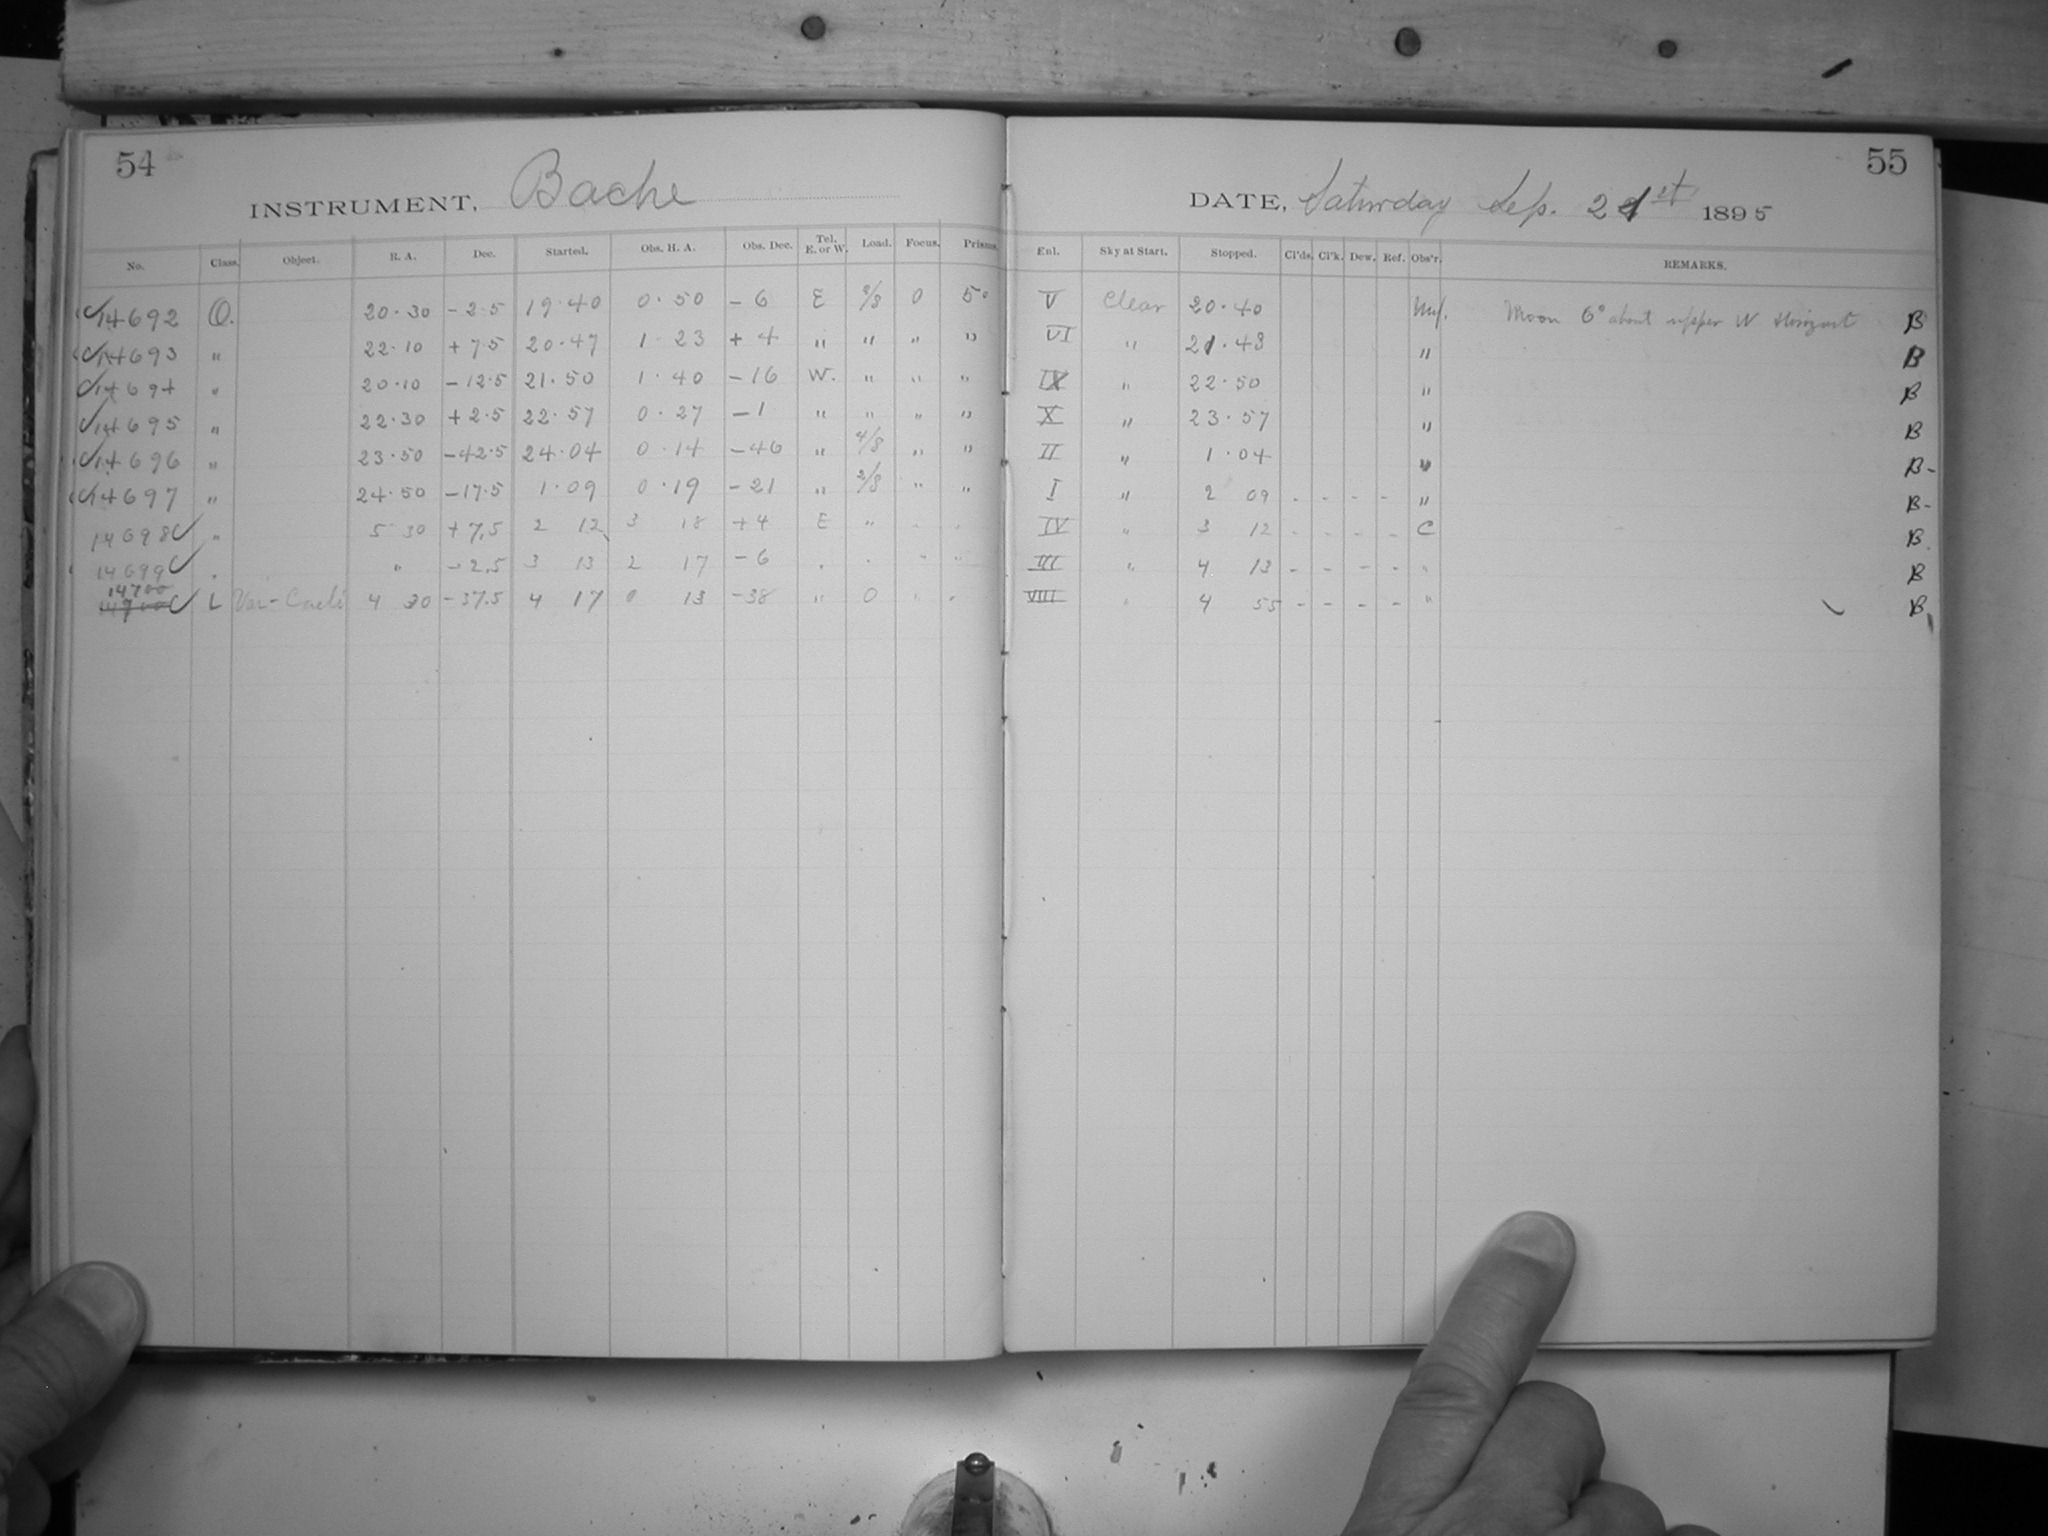 54
INSTRUMENT, Bache
No. Class. Object. R. A. Dec. Started. Obs. H. A. Obs. Dec. Tel. E. or W. Load. Focus. Prisms.
14692 O. 20·30 -2·5 19·40 0·50 -6 E 2/8 0 5°
14693 " 22·10 +7·5 20·47 1·23 +4 " " " "
14694 " 20·10 -12·5 21·50 1·40 -16 W. " " "
14695 " 22·30 +2·5 22·57 0·27 -1 " " " "
14696 " 23·50 -42·5 24·04 0·14 -46 " 4/8 " "
14697 " 24·50 -17·5 1·09 0·19 -21 " 2/8 " "
14698 " 5 30 +7.5 2 12 3 18 +4 E " " "
14699 " " -2.5 3 13 2 17 -6 " " " "
14700 L 4 30 -37.5 4 17 0 13 -38 " 0 " "
55
DATE, Saturday Sep. 21st 1895
Enl. Sky at Start. Stopped. Cl'ds. Cl'k. Dew. Ref. Obs'r. REMARKS.
V Clear 20·40 Moon 6° about upper W Horizont B
VI " 21·48 " B
IX " 22·50 " B
X " 23·57 " B
II " 1·04 " B-
I " 2 09 - - - - " B-
IV " 3 12 - - - - C B
III " 4 13 - - - - " B
VIII " 4 55 - - - - " B